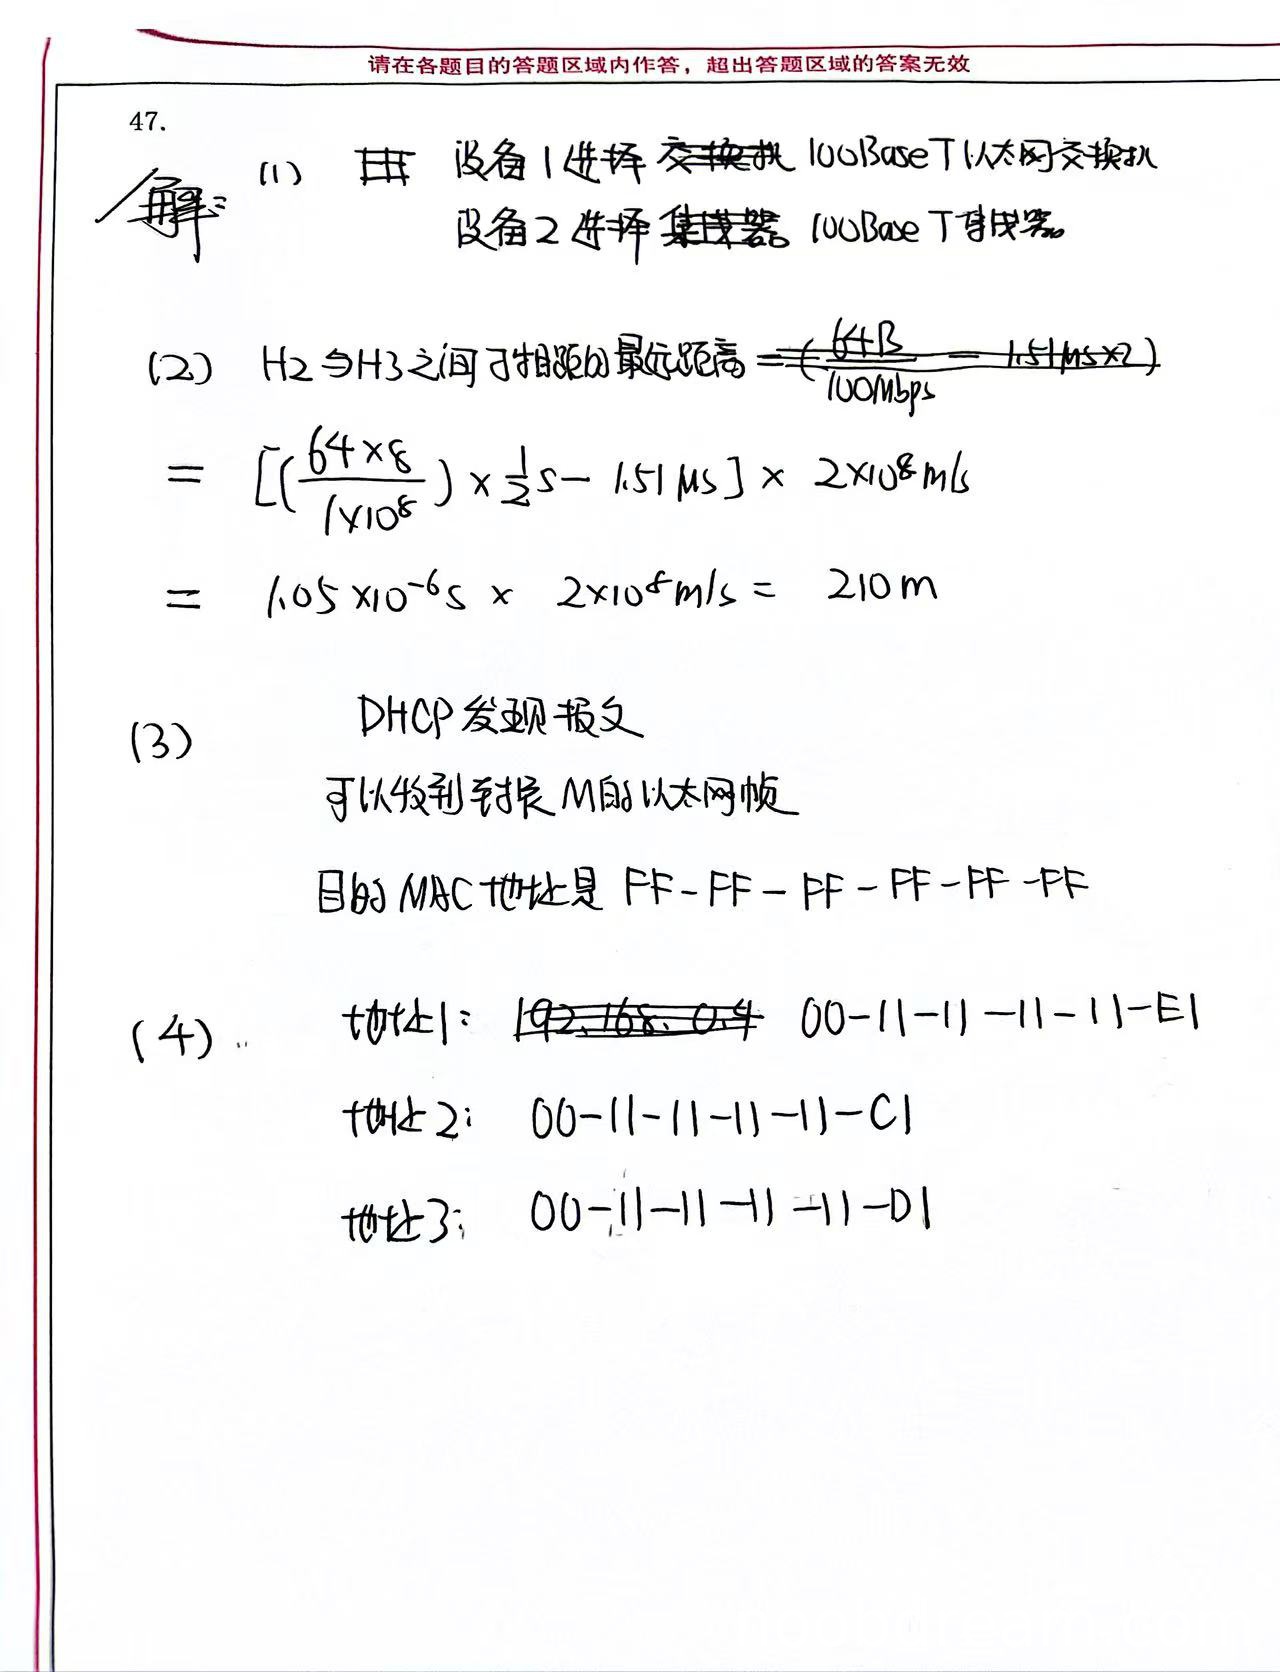 请在各题目的答题区域内作答，超出答题区域的答案无效
47.
解：
(1) 设备1选择 交换机 100BaseT以太网交换机
设备2选择 集线器 100BaseT集线器
(2) H2与H3之间可相距的最远距离 =(64B/100Mbps - 1.51μs×2)
= [(64×8/1×10⁸)×1/2s - 1.51μs] × 2×10⁸m/s
= 1.05×10⁻⁶s × 2×10⁸m/s = 210m
(3) DHCP发现报文
可以收到封装M的以太网帧
目的MAC地址是 FF-FF-FF-FF-FF-FF
(4) 地址1: 192.168.0.4 00-11-11-11-11-E1
地址2: 00-11-11-11-11-C1
地址3: 00-11-11-11-11-D1